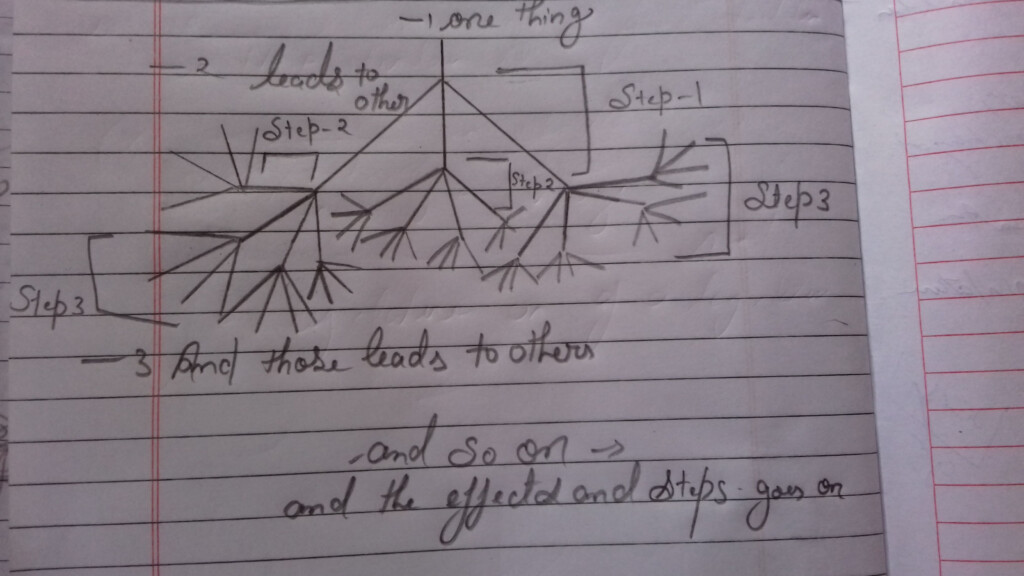 - 1 one thing
- 2 leads to
other
Step-1
Step-2
Step2
Step3
Step3
- 3 And those leads to others
- and so on →
and the effectd and steps goes on